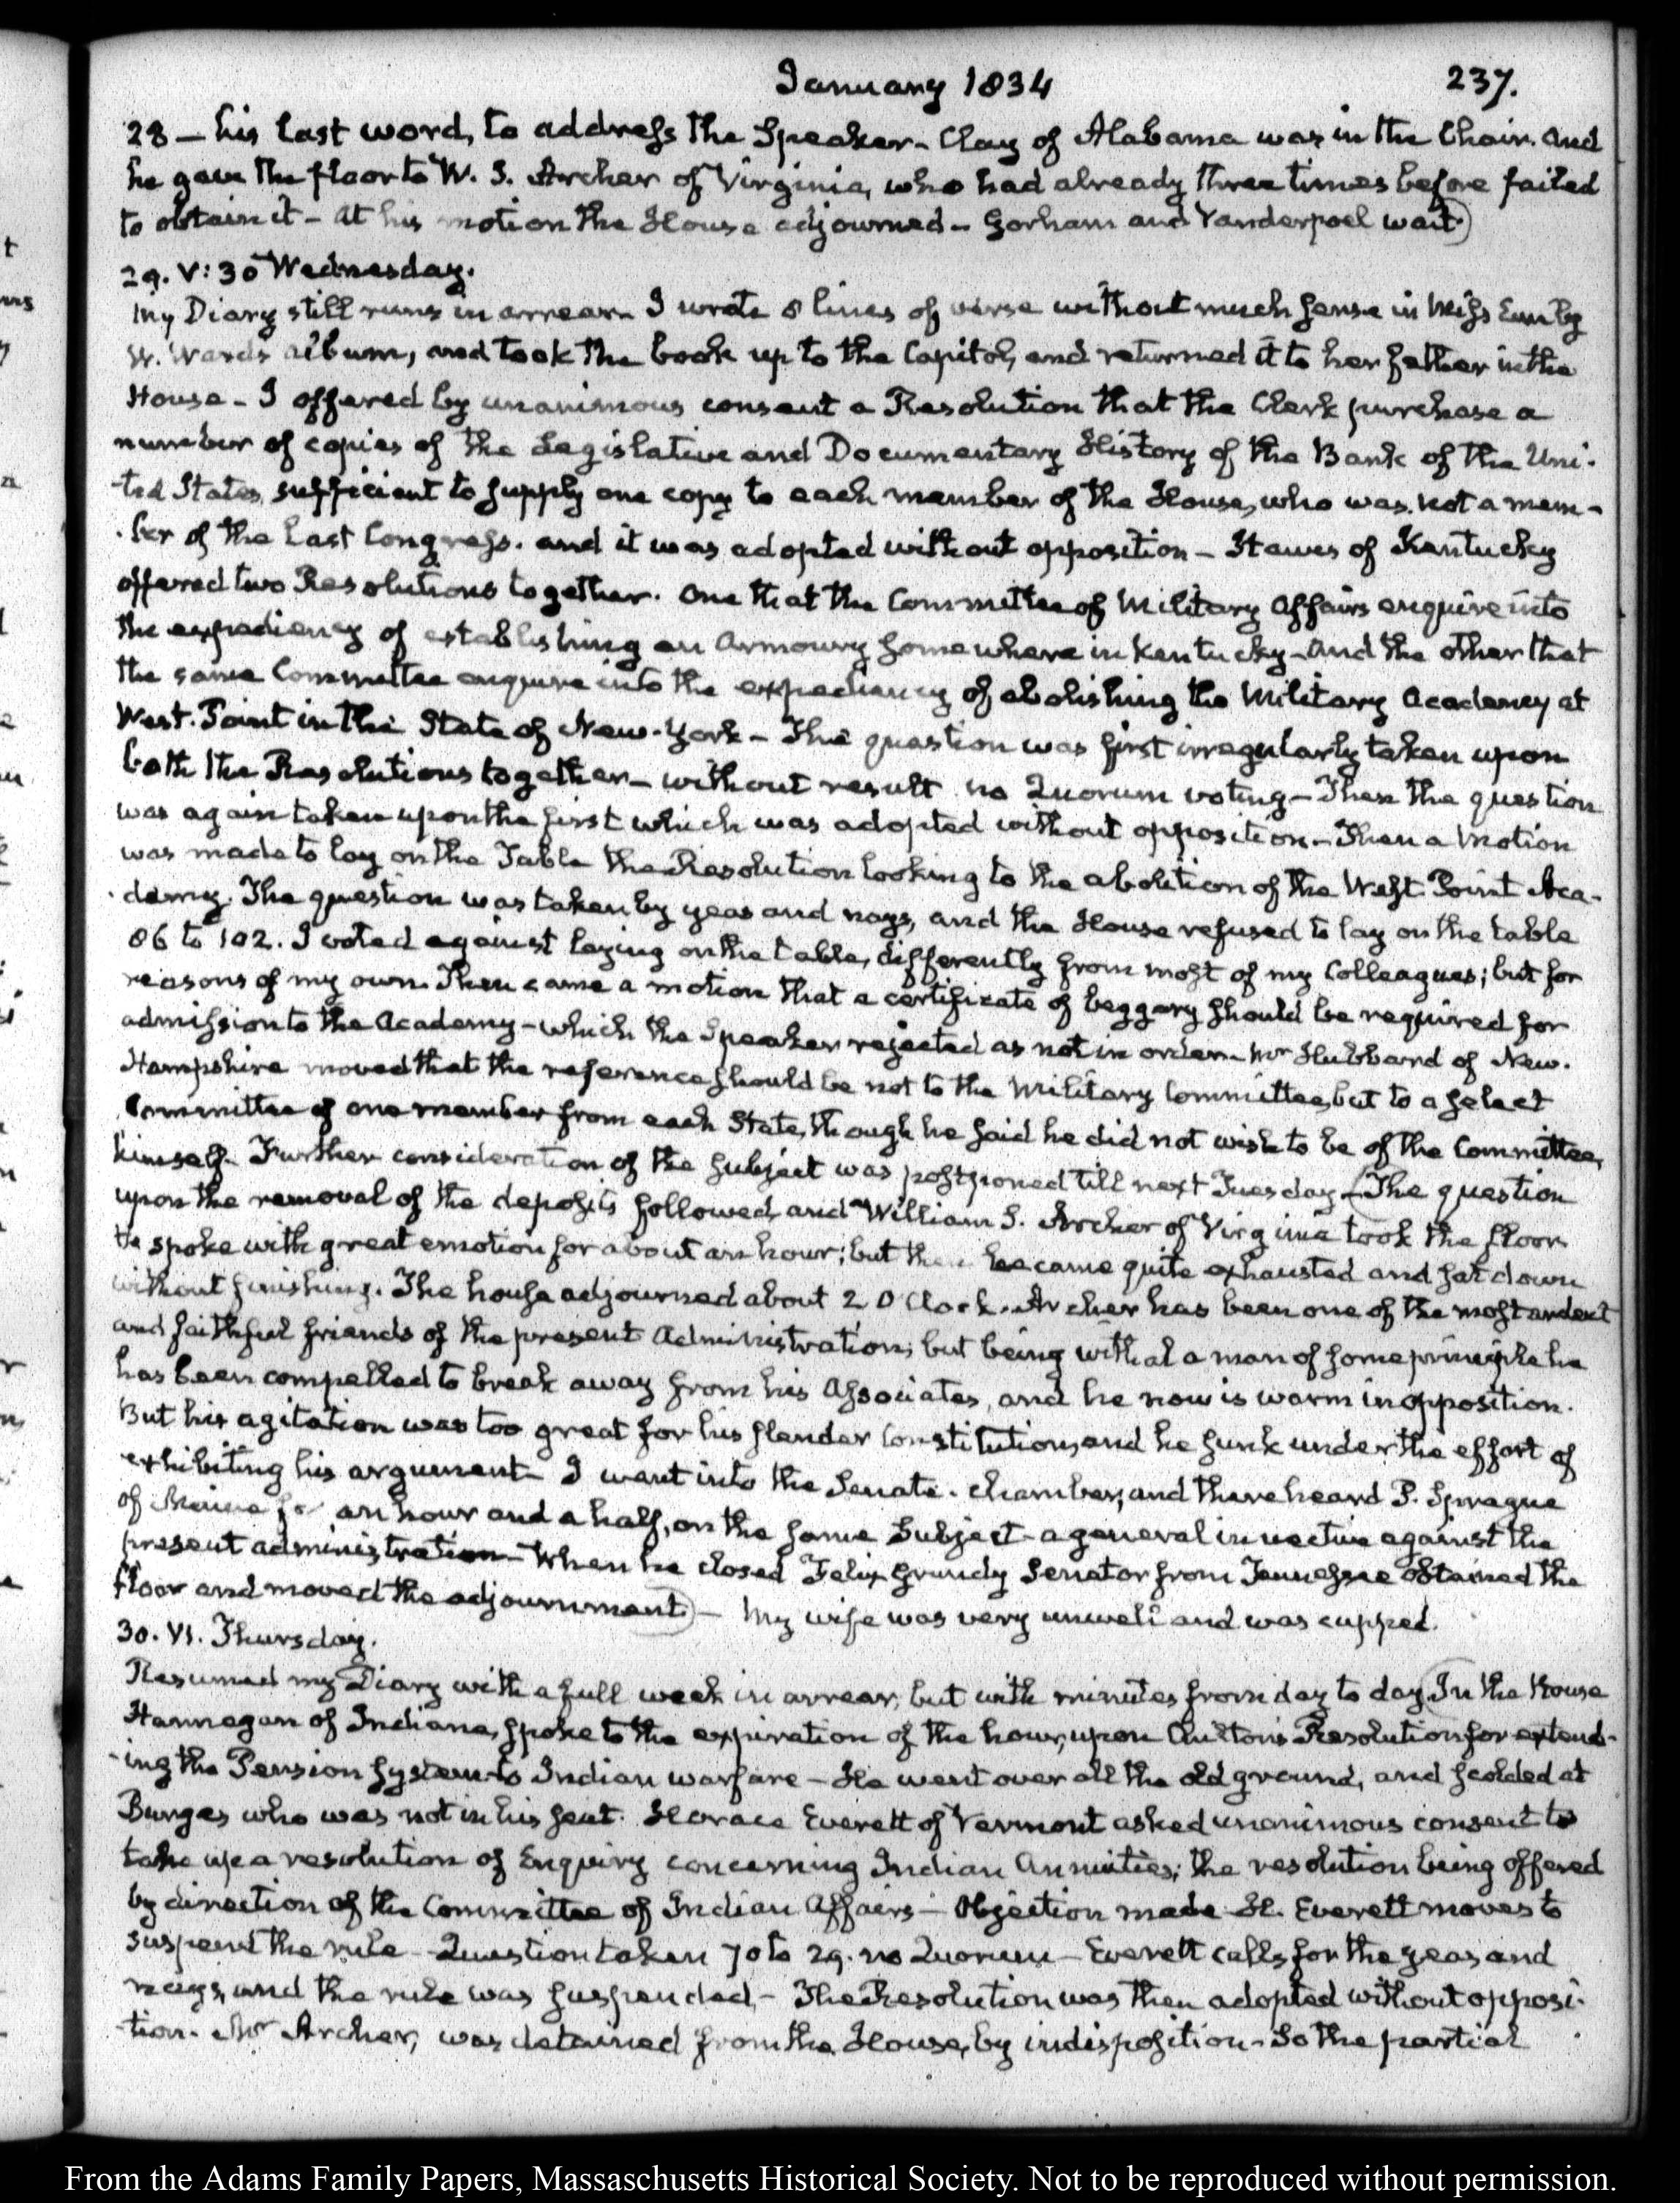 January 1834
237.
28 — his last word, to address the Speaker – Clay of Alabama was in the Chair. and
he gave the floor to W. S. Archer of Virginia, who had already three times before failed
to obtain it – At his motion the House adjourned – Gorham and Vanderpoel wait)
29. V:30 Wednesday.
My Diary still runs in arrear. I wrote 8 lines of verse without much sense in Miss Emily
W. Ward's album, and took the book up to the Capitol, and returned it to her father in the
House – I offered by unanimous consent a Resolution that the Clerk purchase a
number of copies of the Legislative and Documentary History of the Bank of the Uni-
-ted States, sufficient to supply one copy to each member of the House, who was not a mem-
-ber of the last Congress. and it was adopted without opposition – Hawes of Kentucky
offered two Resolutions together. One that the Committee of Military Affairs enquire into
the expediency of establishing an Armoury somewhere in Kentucky – And the other that
the same Committee enquire into the expediency of abolishing the Military Academy at
West-Point in the State of New-York – The question was first irregularly taken upon
both the Resolutions together – without result no Quorum voting – Then the question
was again taken upon the first which was adopted without opposition – Then a motion
was made to lay on the Table the Resolution looking to the abolition of the West Point Aca-
-demy. The question was taken by yeas and nays, and the House refused to lay on the table
86 to 102. I voted against laying on the table, differently from most of my Colleagues; but for
reasons of my own. Then came a motion that a certificate of beggary should be required for
admission to the Academy – which the Speaker rejected as not in order – Mr Hubbard of New-
Hampshire moved that the reference should be not to the Military Committee, but to a select
Committee of one member from each State, though he said he did not wish to be of the Committee,
himself – Further consideration of the subject was postponed till next Tuesday – (The question
upon the removal of the deposits followed, and William S. Archer of Virginia took the floor
He spoke with great emotion for about an hour; but then became quite exhausted and sat down
without finishing. The house adjourned about 2 O'Clock. Archer has been one of the most ardent
and faithful friends of the present Administration; but being withal a man of some principle he
has been compelled to break away from his Associates, and he now is warm in opposition.
But his agitation was too great for his slender Constitution, and he sunk under the effort of
exhibiting his argument – I went into the Senate-chamber, and there heard P. Sprague
of Maine for an hour and a half, on the same Subject – a general invective against the
present administration – When he closed Felix Grundy Senator from Tennessee obtained the
floor and moved the adjournment) – My wife was very unwell and was cupped.
30. VI. Thursday.
Resumed my Diary with a full week in arrear, but with minutes from day to day. (In the House
Hannegan of Indiana, spoke to the expiration of the hour, upon Chilton's Resolution for extend-
-ing the Pension system to Indian warfare – He went over all the old ground, and scolded at
Burges who was not in his seat. Horace Everett of Vermont asked unanimous consent to
take up a resolution of Enquiry concerning Indian Annuities; the resolution being offered
by direction of the Committee of Indian Affairs – Objection made – H. Everett moves to
suspend the rule – Question taken 70 to 29. no Quorum – Everett calls for the yeas and
nays, and the rule was suspended – The Resolution was then adopted without opposi-
-tion. Mr Archer, was detained from the House, by indisposition – So the partial
From the Adams Family Papers, Massachusetts Historical Society. Not to be reproduced without permission.